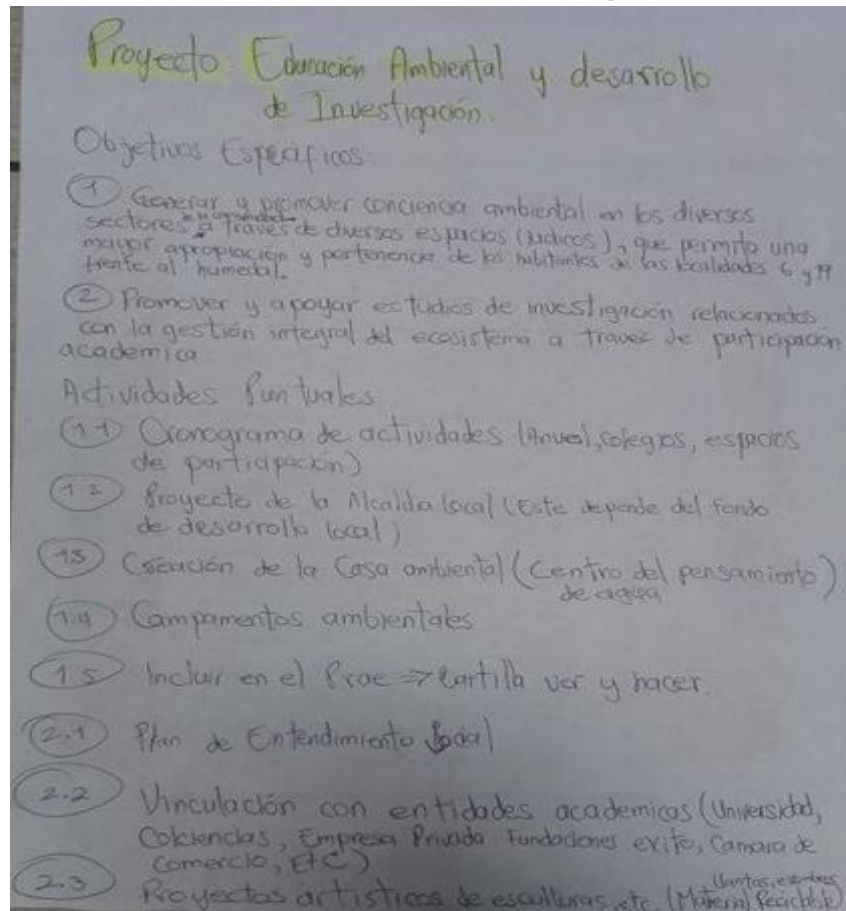 Proyecto Educación Ambiental y desarrollo
de Investigación.
Objetivos Especificos.
1 Generar y promover conciencia ambiental en los diversos
sectores a través de diversos espacios (ludicos), que permita una
mayor apropiación y pertenencia de los habitantes de las localidades 6 y 19
frente al humedal.
2 Promover y apoyar estudios de investigación relacionados
con la gestión integral del ecosistema a travez de participación
academica
Actividades Puntuales
1.1 Cronograma de actividades (Anual, colegios, espacios
de participación)
1.2 Proyecto de la Alcaldia local (Este depende del fondo
de desarrollo local)
1.3 de la Casa ambiental (Centro del pensamiento)
de agua
1.4 Campamentos ambientales
1.5 Incluir en el Prae ⇒ Cartilla ver y hacer.
2.1 Plan de Entendimiento Social
2.2 Vinculación con entidades academicas (Universidad,
Colciencias, Empresa Privada Fundaciones exito, Camara de
Comercio, Etc)
2.3 Proyectos artisticos de esculturas, etc. (Material Reciclable)
llantas,